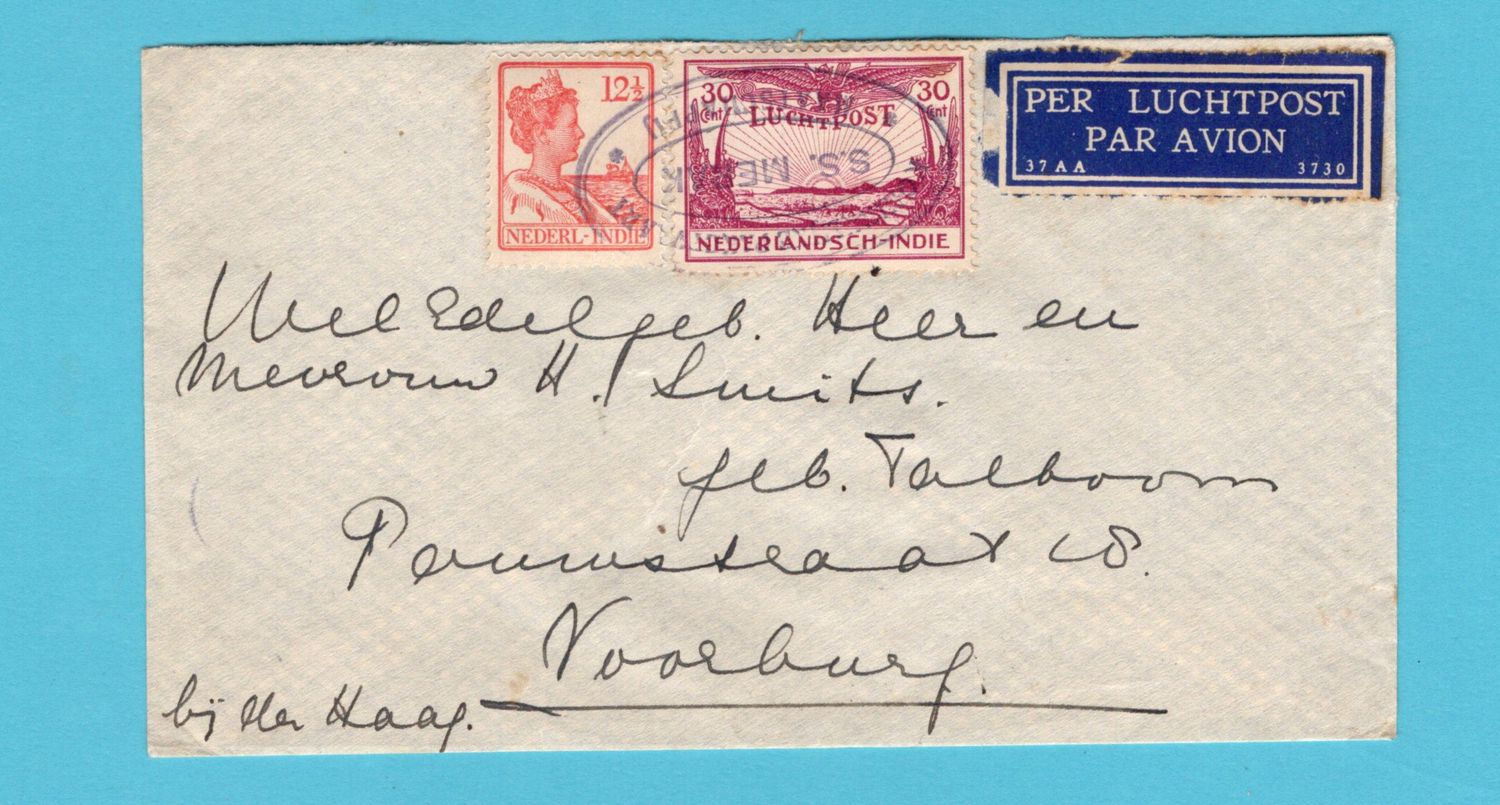 12½
NEDERL-INDIE
30 30
Cent Cent
LUCHTPOST
NEDERLANDSCH-INDIE
S.S. MERAK
PER LUCHTPOST
PAR AVION
37AA 3730
WelEdelgeb. Heer en
Mevrouw H. Smits.
geb. Talboom
straat 18.
Voorburg.
bij den Haag.